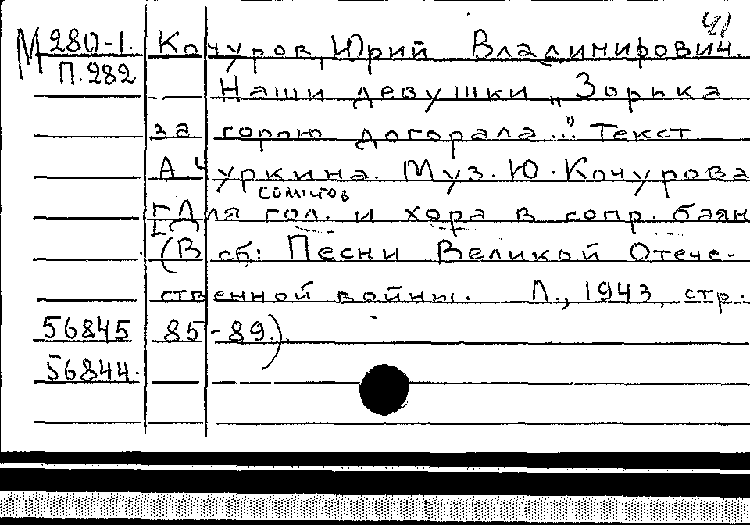 41
М 280-1. Кочуров, Юрий Владимирович.
П.282
Наши девушки „Зорька
за горою догорала..." Текст
А. Чуркина. Муз. Ю. Кочурова
солистов
[Для гол. и хора в сопр. баян
(В сб: Песни Великой Отече-
ственной войны. Л., 1943, стр.
56845 85-89.)
56844.